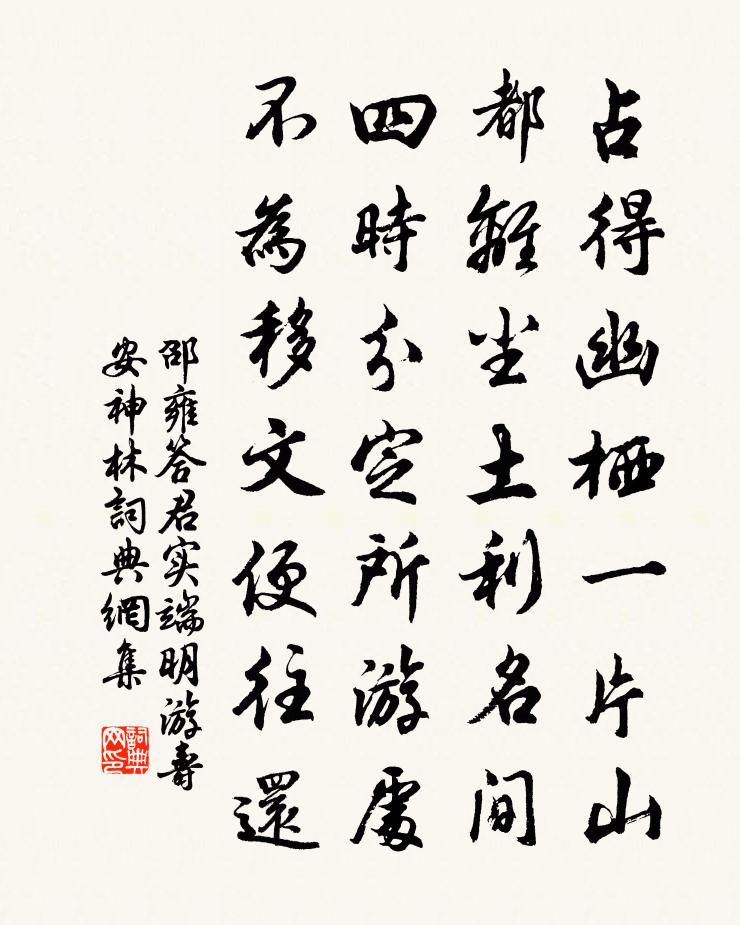 占得幽栖一片山
都離尘土利名間
四時分定所游處
不為移文便往還
邵雍答君实端明游壽
安神林詞典網集
詞典
网印